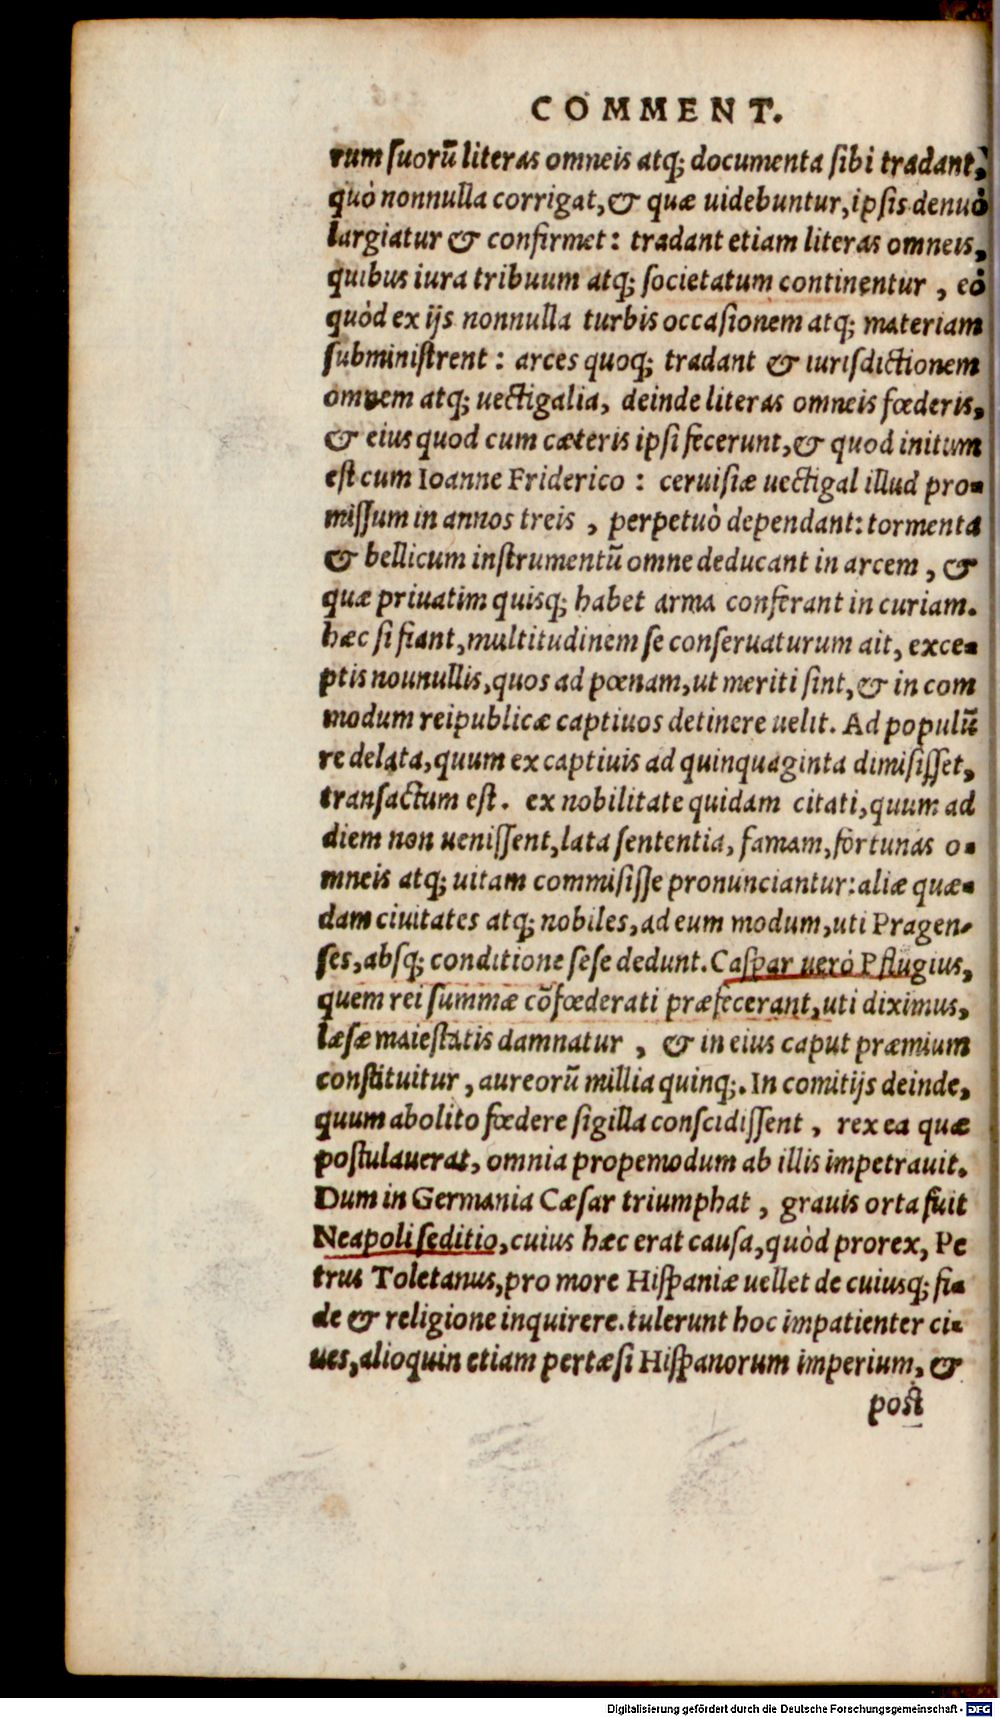 COMMENT.
rum suorū literas omneis atq; documenta sibi tradant,
quò nonnulla corrigat, & quæ uidebuntur, ipsis denuò
largiatur & confirmet: tradant etiam literas omneis,
quibus iura tribuum atq; societatum continentur, eò
quòd ex ijs nonnulla turbis occasionem atq; materiam
subministrent: arces quoq; tradant & iurisdictionem
omnem atq; uectigalia, deinde literas omneis fœderis,
& eius quod cum cæteris ipsi fecerunt, & quod initum
est cum Ioanne Friderico: ceruisiæ uectigal illud pro-
missum in annos treis, perpetuò dependant: tormenta
& bellicum instrumentū omne deducant in arcem, &
quæ priuatim quisq; habet arma conferant in curiam.
hæc si fiant, multitudinem se conseruaturum ait, exce-
ptis nounullis, quos ad pœnam, ut meriti sint, & in com
modum reipublicæ captiuos detinere uelit. Ad populū
re delata, quum ex captiuis ad quinquaginta dimisisset,
transactum est. ex nobilitate quidam citati, quum ad
diem non uenissent, lata sententia, famam, fortunas o-
mneis atq; uitam commisisse pronunciantur: aliæ quæ-
dam ciuitates atq; nobiles, ad eum modum, uti Pragen-
ses, absq; conditione sese dedunt. Caspar uerò Pflugius,
quem rei summæ cōfœderati præfecerant, uti diximus,
læsæ maiestatis damnatur, & in eius caput præmium
constituitur, aureorū millia quinq;. In comitijs deinde,
quum abolito fœdere sigilla conscidissent, rex ea quæ
postulauerat, omnia propemodum ab illis impetrauit.
Dum in Germania Cæsar triumphat, grauis orta fuit
Neapoli seditio, cuius hæc erat causa, quòd prorex, Pe
trus Toletanus, pro more Hispaniæ uellet de cuiusq; fi-
de & religione inquirere. tulerunt hoc impatienter ci-
ues, alioquin etiam pertæsi Hispanorum imperium, &
post
Digitalisierung gefördert durch die Deutsche Forschungsgemeinschaft - DFG